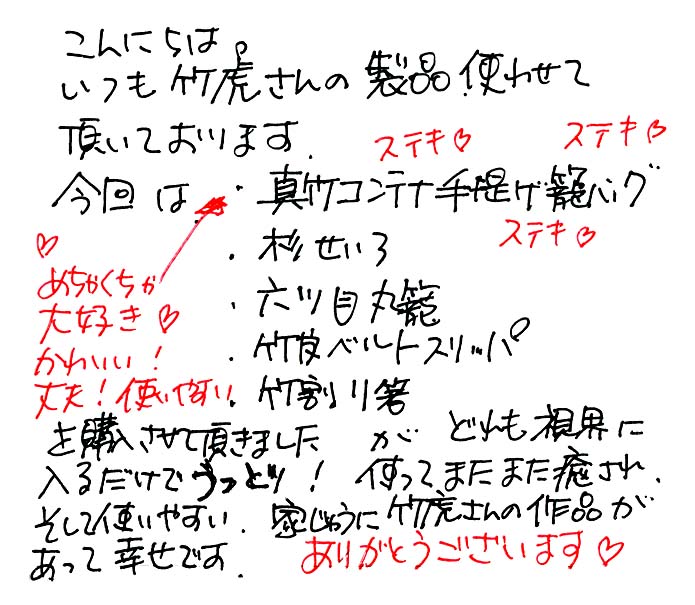 こんにちは。
いつも竹虎さんの製品使わせて
頂いております.
ステキ♡ ステキ♡
今回は、・真竹コンテナ手提げ籠バッグ
ステキ♡
・杉せいろ
・六ツ目丸籠
・竹皮ベルトスリッパ
・竹割り箸
♡
めちゃくちゃ
大好き♡
かわいい！
丈夫！使いやすい
を購入させて頂きましたが どれも視界に
入るだけでうっとり！使ってまたまた癒され、
そして使いやすい．家じゅうに竹虎さんの作品が
あって幸せです．ありがとうございます♡